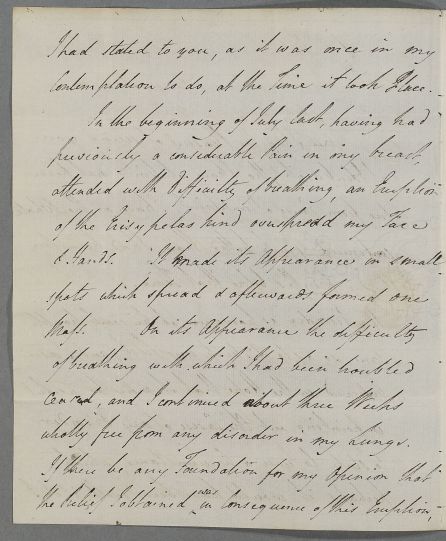 I had stated to you, as it was once in my
Contemplation to do, at the Time it took Place.
In the beginning of July last, having had
previously a considerable Pain in my breast,
attended with difficulty of breathing, an Eruption
of the Erisypelas kind overspread my Face
& Hands. It made its Appearance in small
spots which spread & afterwards formed one
Mass. On its Appearance the difficulty
of breathing with which I had been troubled
ceased, and I continued about three Weeks
wholly free from any disorder in my Lungs.
If there be any Foundation for my Opinion that
the Relief I obtained was in Consequence of this Eruption,